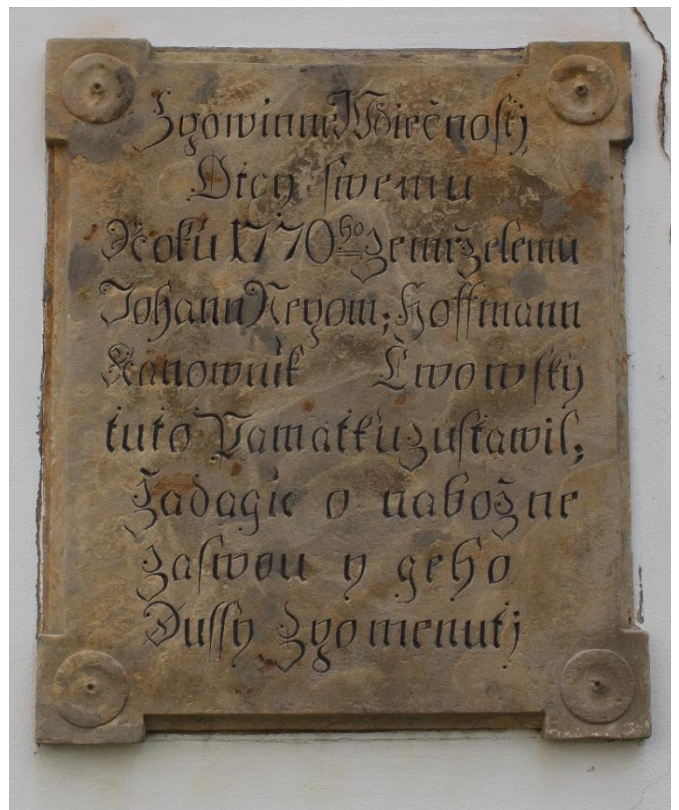 Zpowinne Wdiečnosti
Otcy swemu
Roku 1770ho Zemrželemu
Johann Nepom; Hoffmann
Kanownik Lwowský
tuto Pamatku zustawil;
Žadagic o nabožne
za swou y geho
Dussy Zpomenutj